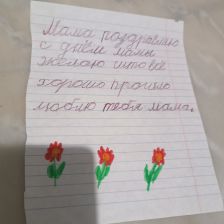 Мама поздравляю
с днём мамы
желаю что всё
хорошо прочно
люблю тебя мама.